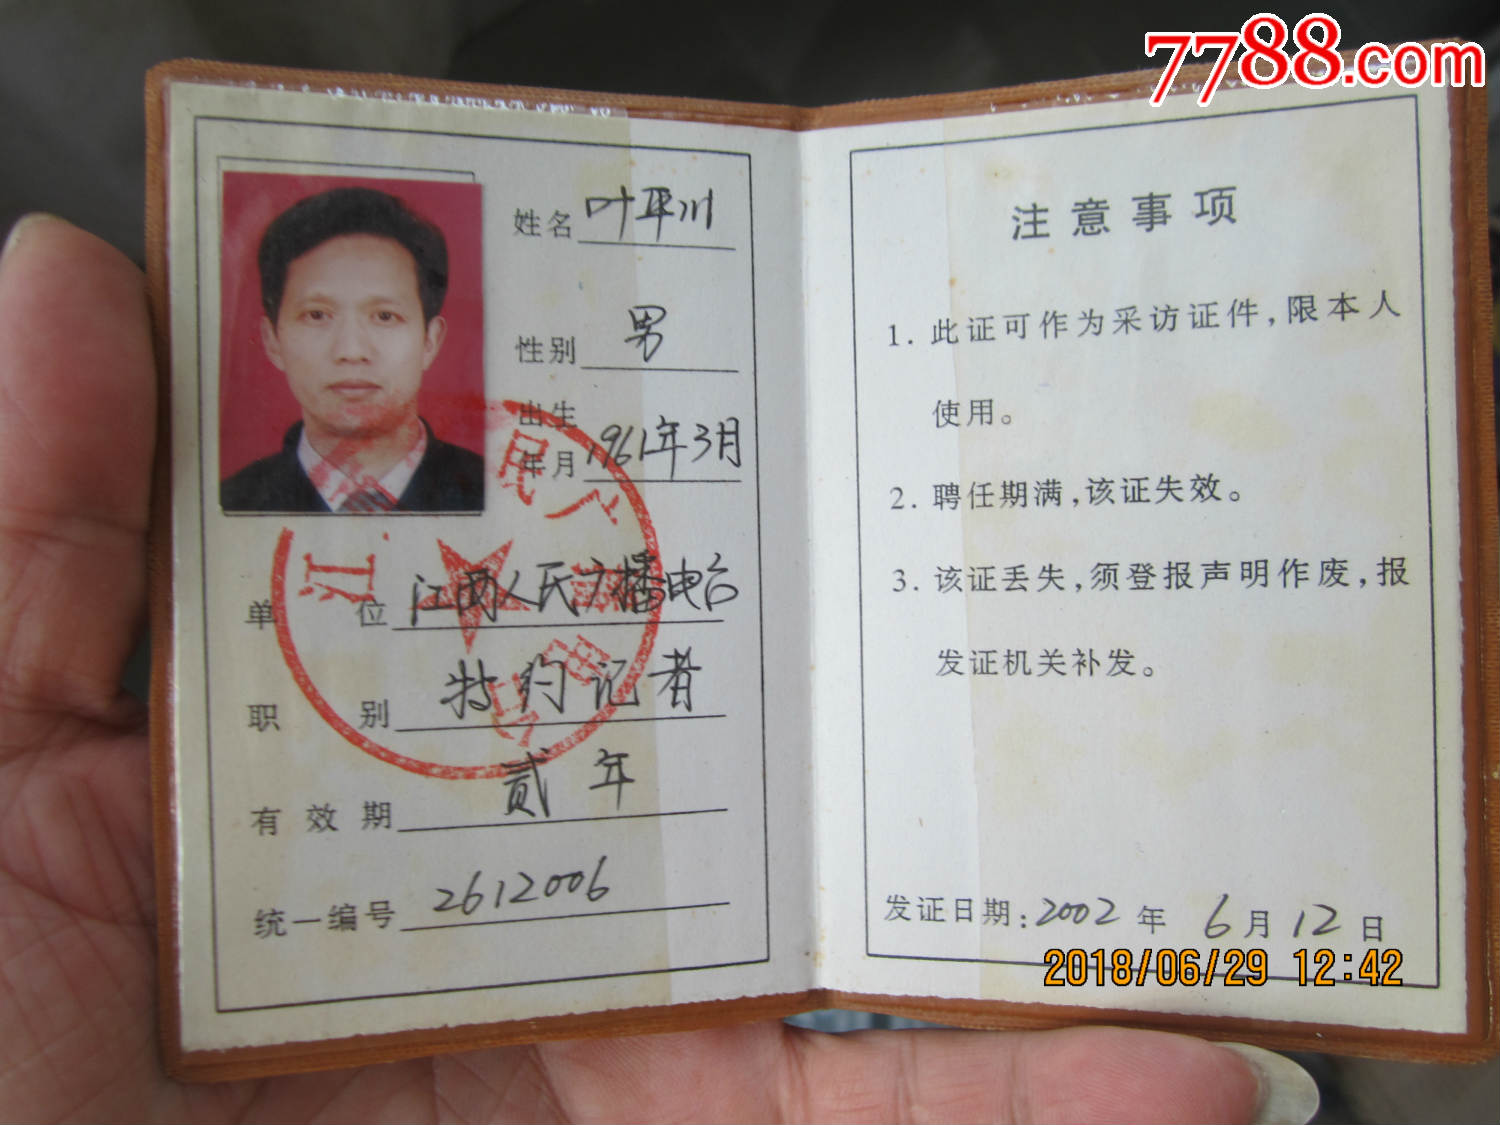 7788.com
姓名 叶平川
性别 男
出生
年月 1961年3月
单位 江西人民广播电台
职别 特约记者
有效期 贰年
统一编号 2612006
注意事项
1. 此证可作为采访证件,限本人
使用。
2. 聘任期满,该证失效。
3. 该证丢失,须登报声明作废,报
发证机关补发。
发证日期:2002年6月12日
2018/06/29 12:42
江 民广 电台